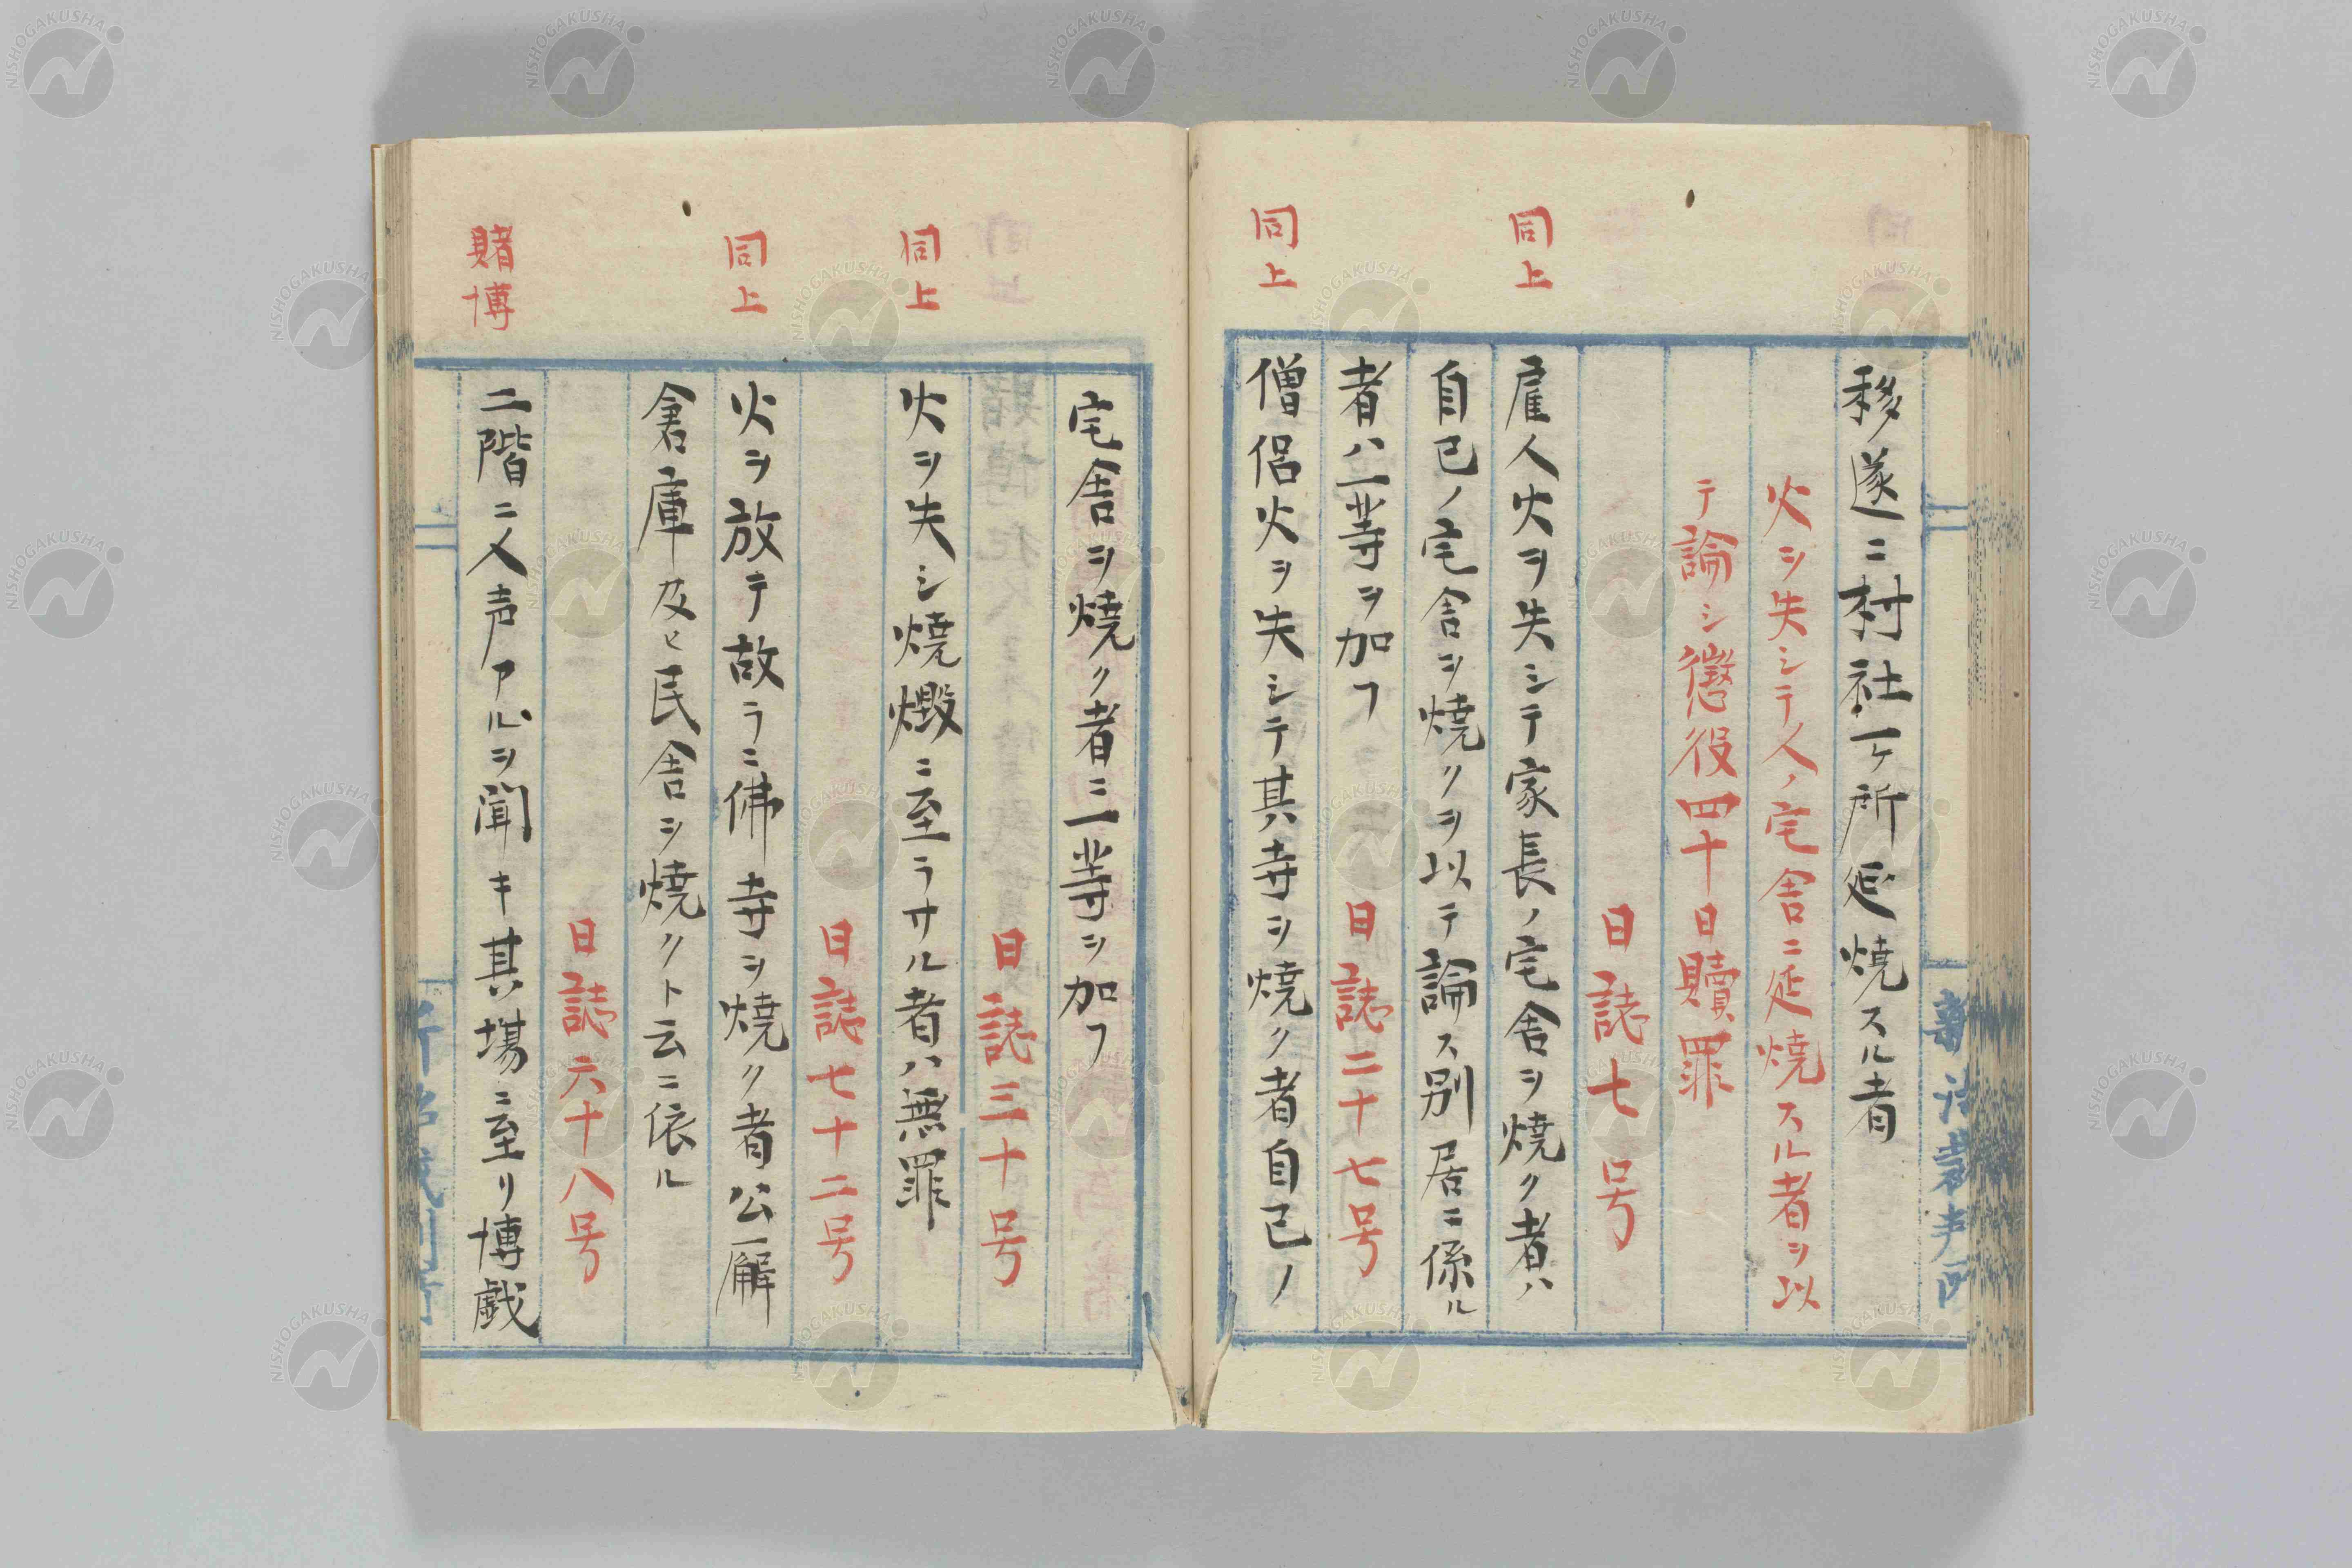 移遂ニ村社一ケ所延焼スル者
火ヲ失シテ人ノ宅舎ニ延焼スル者ヲ以
テ論シ懲役四十日贖罪
日誌七号
同上
雇人火ヲ失シテ家長ノ宅舎ヲ焼ク者ハ
自己ノ宅舎ヲ焼クヲ以テ論ス別居ニ係ル
者ハ一等ヲ加フ
日誌二十七号
同上
僧侶火ヲ失シテ其寺ヲ焼ク者自己ノ
宅舎ヲ焼ク者ニ一等ヲ加フ
日誌三十号
同上
火ヲ失シ焼燬ニ至ラサル者ハ無罪
日誌七十二号
同上
火ヲ放テ故ラニ佛寺ヲ焼ク者公廨
倉庫及ヒ民舎ヲ焼クト云ニ依ル
日誌六十八号
賭博
二階ニ人声アルヲ聞キ其場ニ至リ博戯
新治裁判所
NISHOGAKUSHA